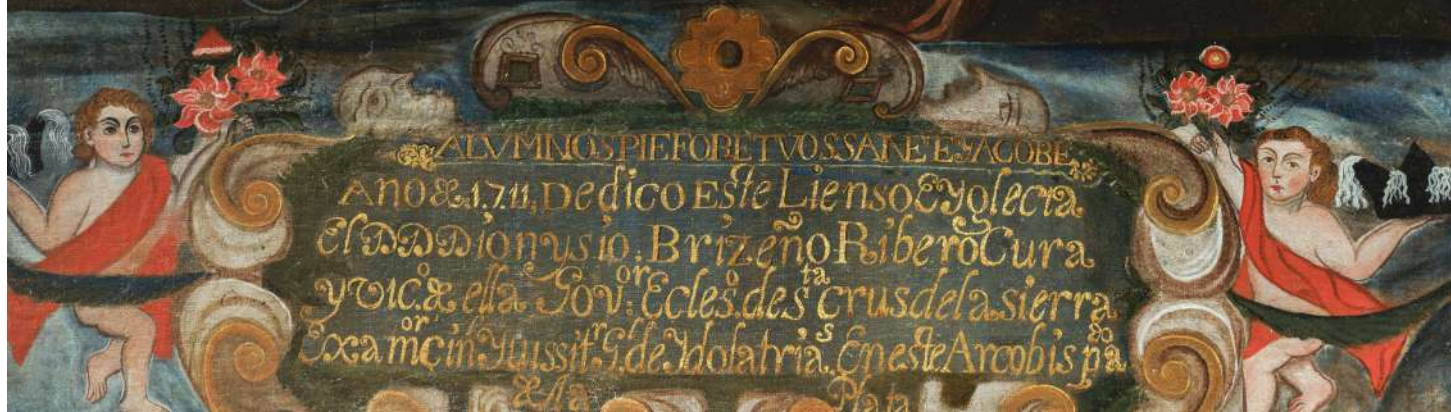 ALVMNOS PIE FOBETVOS SANE E YACOBE
Ano de 1.7.11, Dedico Este Lienso E Yglecia
El D D Dionysio. Brizeño Ribero Cura
y vic.º de ella Gov.or Ecles.º de s.ta crus de la sierra
Exam.or G.l de Ydolatrias. En este Arcobispado
de la Plata